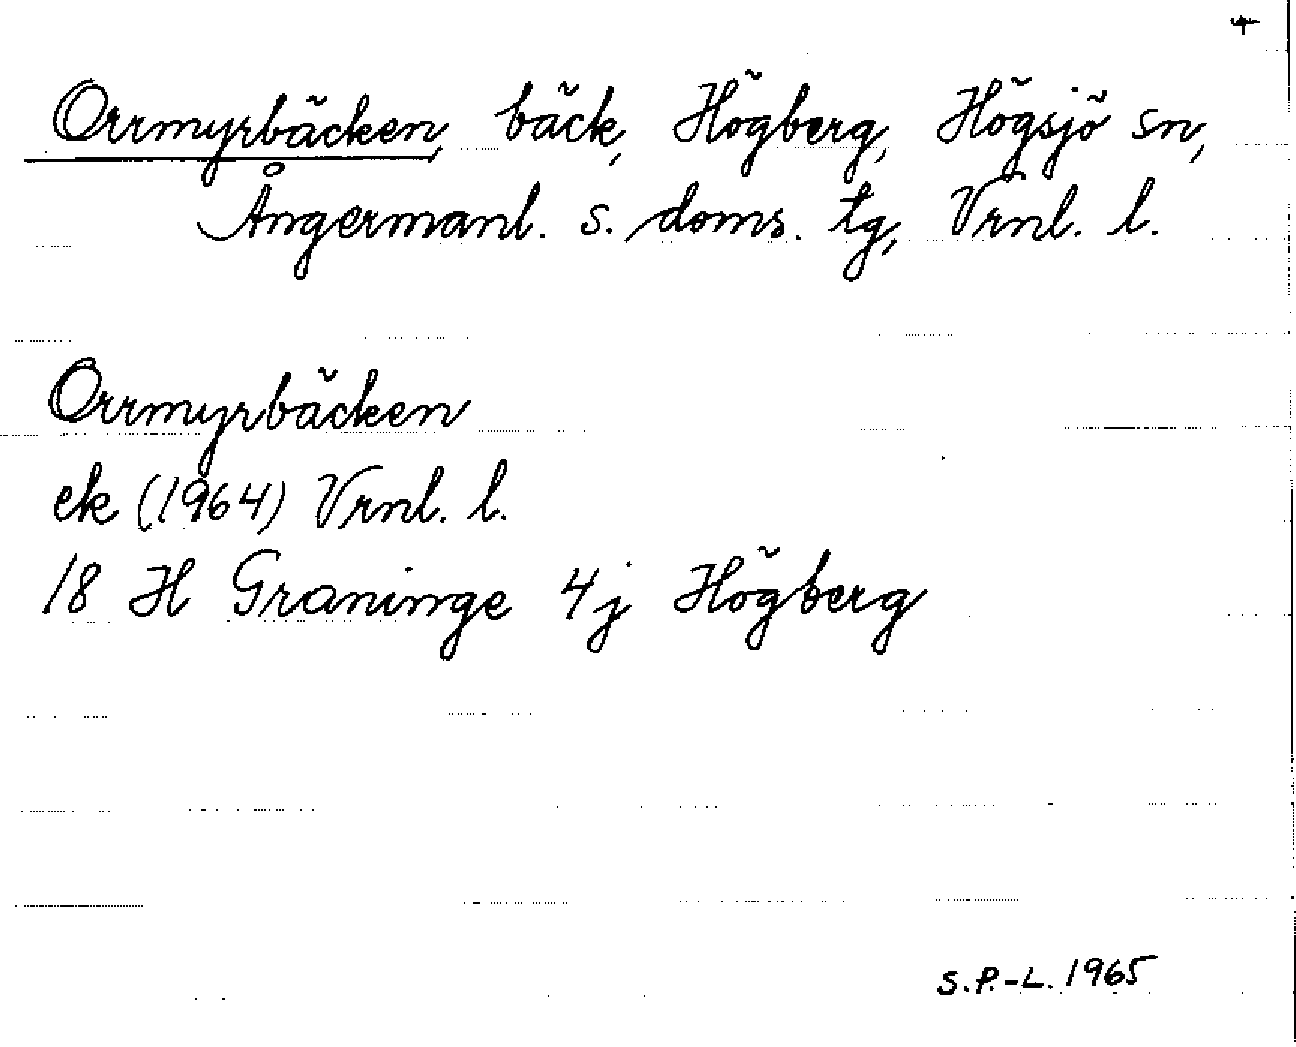 Orrmyrbäcken, bäck, Högberg, Högsjö sn,
Ångermanl. s. doms. tg, Vrnl. l.
Orrmyrbäcken
ek (1964) Vrnl. l.
18 H Graninge 4j Högberg
S.P.-L. 1965